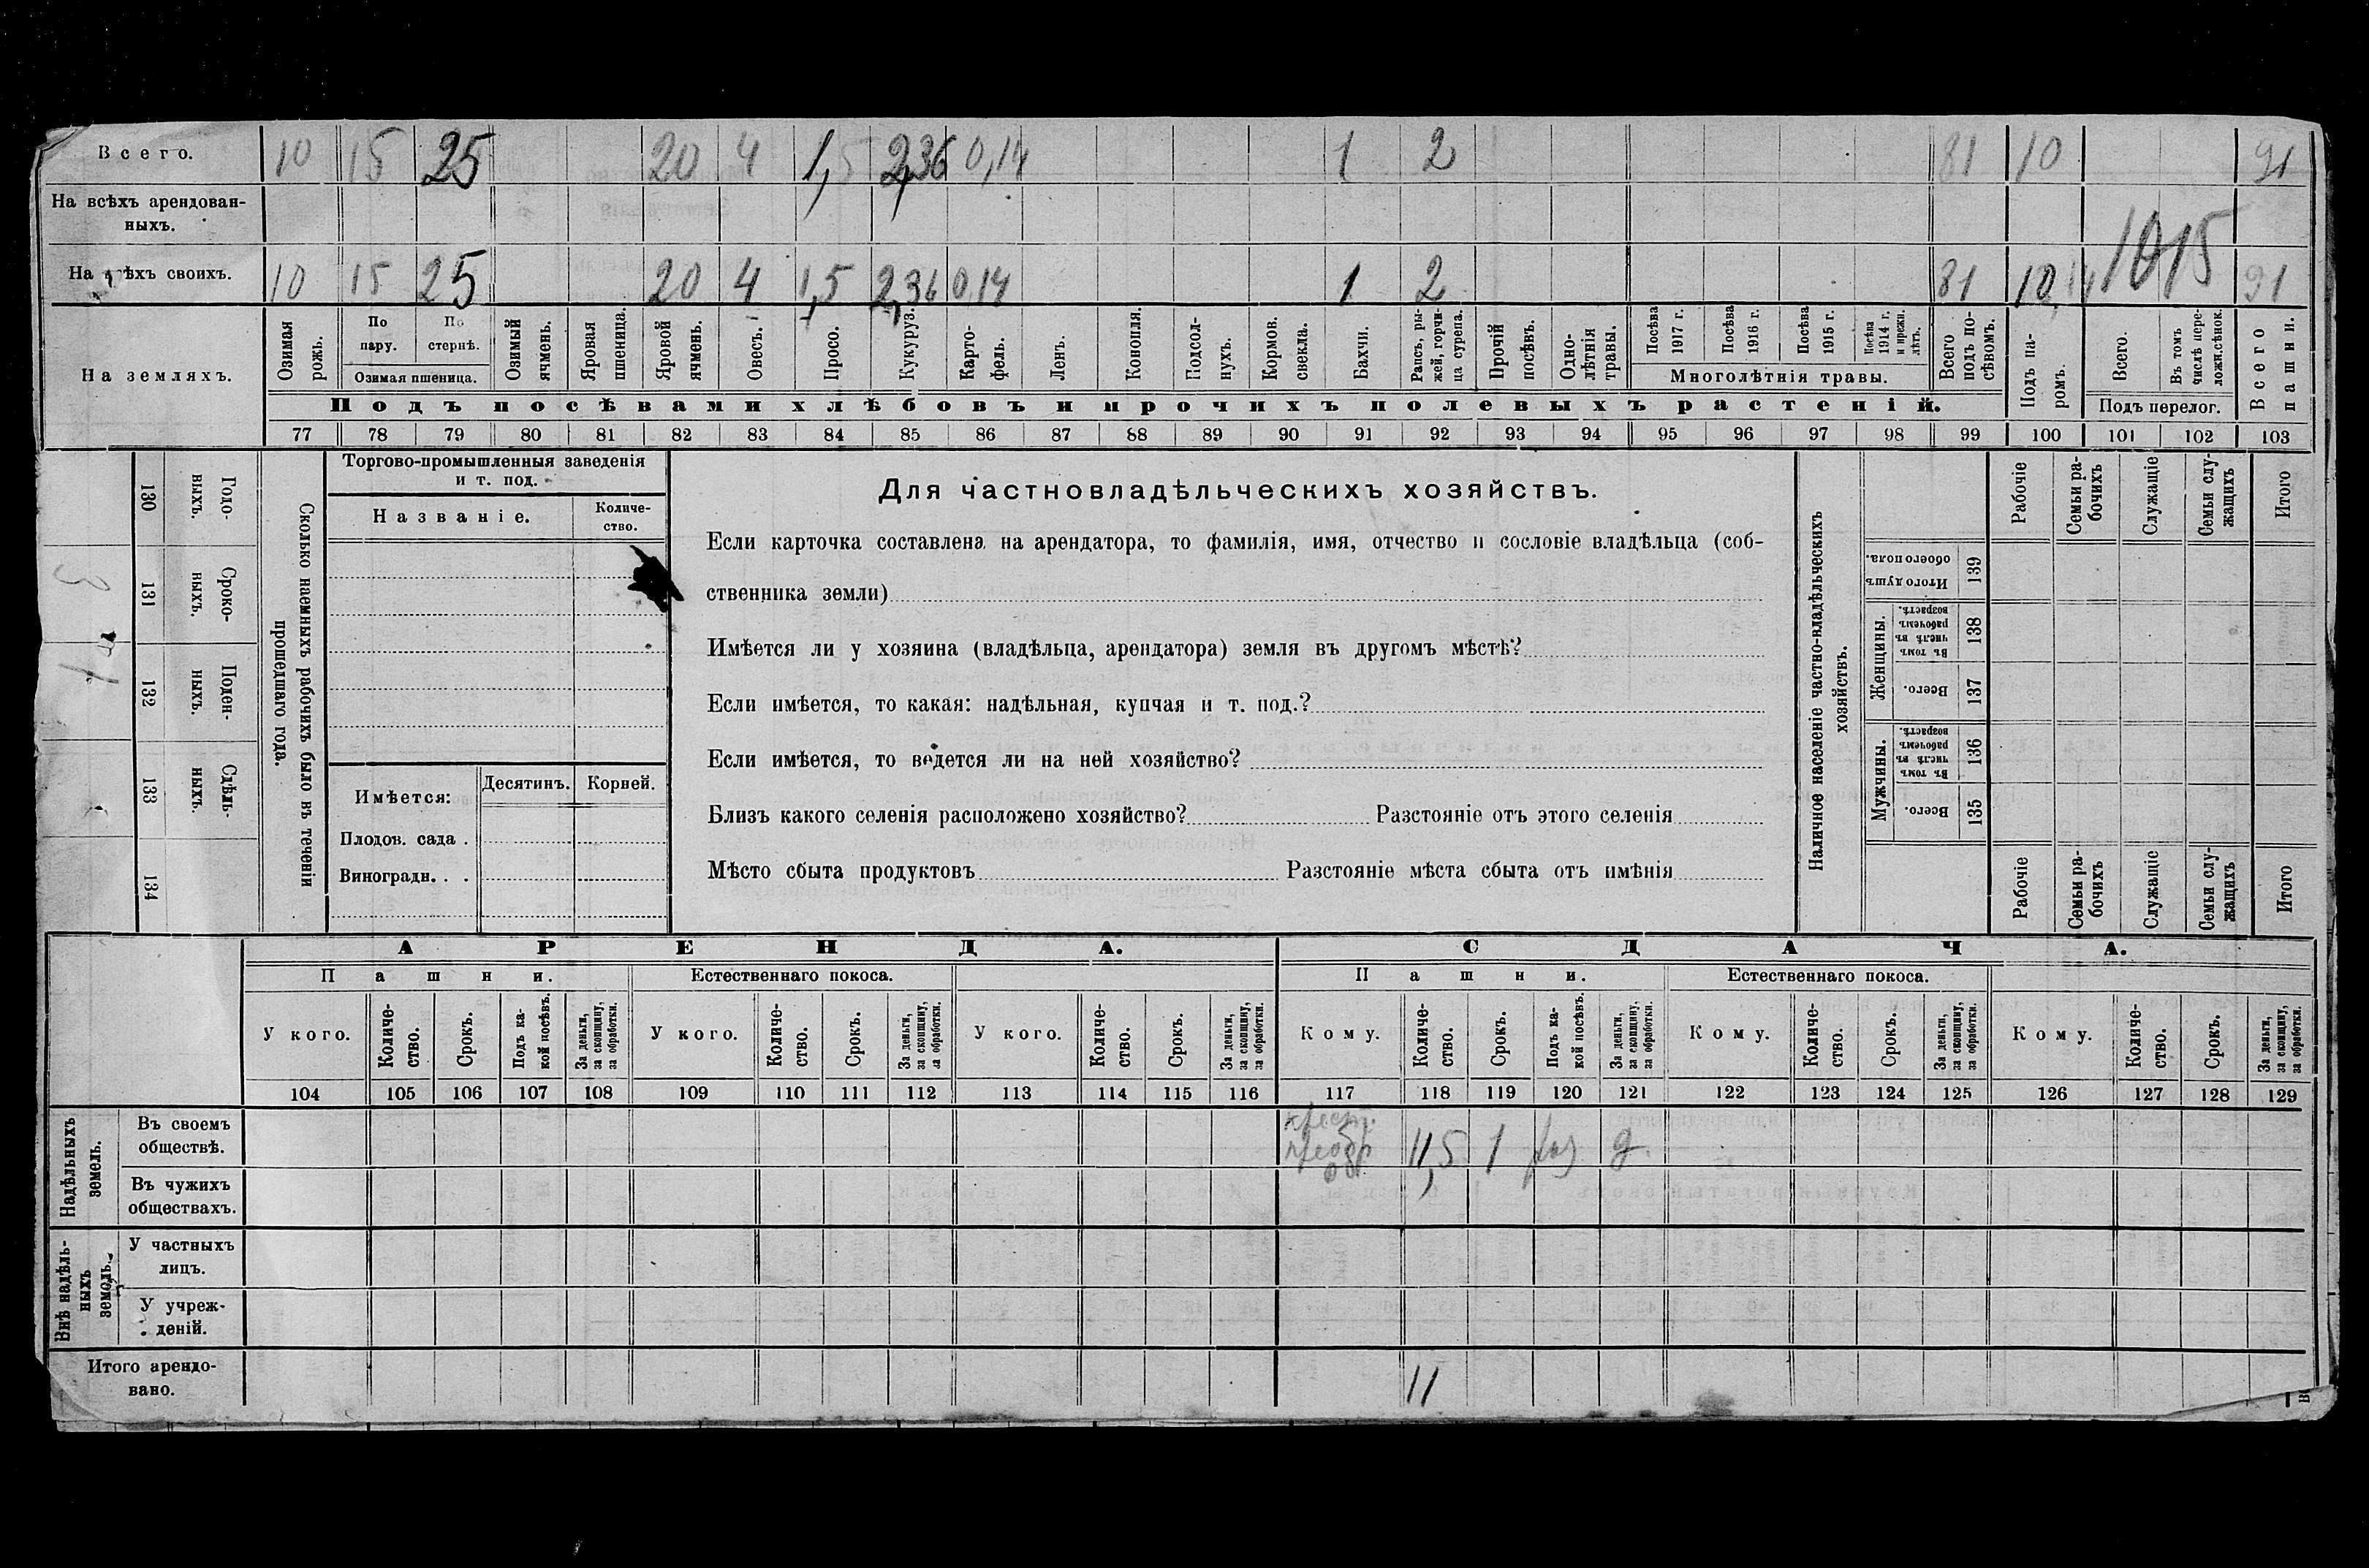 Всего. 10 15 25 20 4 1,5 2,36 0,14 1 2 81 10 91
На всѣхъ арендован-
ныхъ.
1015
На всѣхъ своихъ. 10 15 25 20 4 1,5 2,36 0,14 1 2 81 10 91
На земляхъ.
Озимая рожь.
По пару.
По стернѣ.
Озимая пшеница.
Озимый ячмень.
Яровая пшеница.
Яровой ячмень.
Овесъ.
Просо.
Кукуруз.
Карто-
фель.
Ленъ.
Конопля.
Подсол-
нухъ.
Кормов. свекла.
Бахчи.
Рапсъ, ры-
жей, горчи-
ца сурепа.
Прочій посѣвъ.
Одно-
лѣтнія травы.
Посѣва 1917 г.
Посѣва 1916 г.
Посѣва 1915 г.
Посѣва 1914 г. и прежн. лѣтъ.
Многолѣтнія травы.
Всего подъ по-
сѣвомъ.
Подъ па-
ромъ.
Всего.
Въ томъ числѣ пере-
ложн.сѣнок.
Подъ перелог.
Всего пашни.
Подъ посѣвами хлѣбовъ и прочихъ полевыхъ растеній.
77 78 79 80 81 82 83 84 85 86 87 88 89 90 91 92 93 94 95 96 97 98 99 100 101 102 103
Сколько наемныхъ рабочихъ было въ теченіи
прошедшаго года.
Годо-
выхъ.
130
Сроко-
ныхъ.
131
Поден-
ныхъ.
132
Сдѣль-
ныхъ.
133
134
Торгово-промышленныя заведенія
и т. под.
Названіе.
Количе-
ство.
Имѣется:
Десятинъ.
Корней.
Плодов. сада .
Виноградн. . .
Для частновладѣльческихъ хозяйствъ.
Если карточка составлена на арендатора, то фамилія, имя, отчество и сословіе владѣльца (соб-
ственника земли)
Имѣется ли у хозяина (владѣльца, арендатора) земля въ другомъ мѣстѣ?
Если имѣется, то какая: надѣльная, купчая и т. под.?
Если имѣется, то ведется ли на ней хозяйство?
Близъ какого селенія расположено хозяйство? Разстояніе отъ этого селенія
Мѣсто сбыта продуктовъ Разстояніе мѣста сбыта отъ имѣнія
Наличное населеніе частно-владѣльческихъ
хозяйствъ.
Рабочіе
Семьи ра-
бочихъ
Служащіе
Семьи слу-
жащихъ
Итого
Итого душъ обоего пола.
139
Женщины.
Въ томъ числѣ въ рабочемъ возрастѣ.
138
Всего.
137
Мужчины.
Въ томъ числѣ въ рабочемъ возрастѣ.
136
Всего.
135
Рабочіе
Семьи ра-
бочихъ
Служащіе
Семьи слу-
жащихъ
Итого
АРЕНДА.
СДАЧА.
Пашни.
Естественнаго покоса.
Пашни.
Естественнаго покоса.
У кого.
Количе-
ство.
Срокъ.
Подъ ка-
кой посѣвъ.
За деньги,
за скопщину,
за обработки.
У кого.
Количе-
ство.
Срокъ.
За деньги,
за скопщину,
за обработки.
У кого.
Количе-
ство.
Срокъ.
За деньги,
за скопщину,
за обработки.
Кому.
Количе-
ство.
Срокъ.
Подъ ка-
кой посѣвъ.
За деньги,
за скопщину,
за обработки.
Кому.
Количе-
ство.
Срокъ.
За деньги,
за скопщину,
за обработки.
Кому.
Количе-
ство.
Срокъ.
За деньги,
за скопщину,
за обработки.
104 105 106 107 108 109 110 111 112 113 114 115 116 117 118 119 120 121 122 123 124 125 126 127 128 129
Надѣльныхъ
земель.
Въ своемъ
обществѣ.
крест.
11,5 1 д.
Въ чужихъ
обществахъ.
Внѣ надѣль-
ныхъ
земель.
У частныхъ
лицъ.
У учреж-
деній.
Итого арендо-
вано.
11